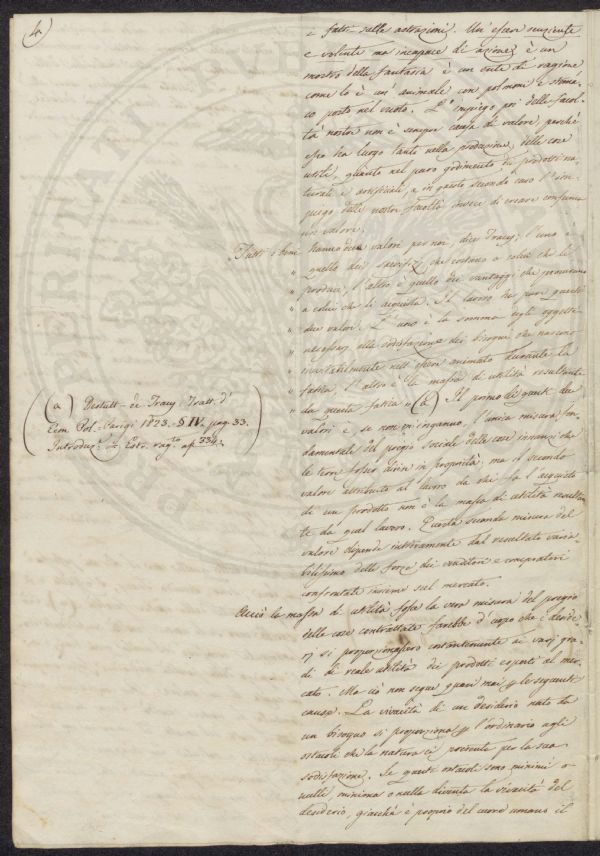 4
= fatti sulle astrazioni. Un' essere senziente
e volente ma incapace di azione, è un
mostro della fantasia è un ente di ragione
come lo è un' animale con polmoni e stoma-
co posto nel vuoto. L' impiego poi delle facol-
tà nostre non è sempre causa di valore, perchè
esso ha luogo tanto nella produzione delle cose
utili, quanto nel puro godimento dei prodotti na-
turali e artificiali, e in questo secondo caso l' im-
piego delle nostre facoltà invece di creare consuma
un valore.
Tutti i beni hanno due valori per noi, dice Tracy; l' uno è
" quello dei sacrifizj che costano a colui che li
" produce, l' altro è quello dei vantaggi che procurano
" a colui che li acquista. Il lavoro ha pure questi
" due valori. L' uno è la somma degli oggetti
" necessarj alla sodisfazione dei bisogni che nascono
" inevitabilmente nell' essere animato durante la
" fatica, l' altro è la massa di utilità resultante
" da questa fatica " (a) Il primo di questi due
valori è se non m' inganno, l' unica misura fon-
damentale del pregio sociale delle cose innanzi che
le terre fossero divise in proprietà, ma il secondo
valore attribuito al lavoro da chi fa l' acquisto
di un prodotto non è la massa di utilità resultan-
te da quel lavoro. Questa seconda misura del
valore dipende interamente dal resultato varia-
bilissimo delle forze dei venditori e compratori
confrontate insieme sul mercato.
(a) Destutt-de Tracy. Tratt. d'
Econ. Pol. Parigi 1823. § IV. pag. 33.
Introduz.
334.
Acciò la massa di utilità fosse la vera misura del pregio
delle cose contrattate sarebbe d' uopo che i deside-
rj si proporzionassero costantemente ai varj gra-
di di reale utilità dei prodotti esposti al mer-
cato. Ma ciò non segue quasi mai p le seguenti
cause. La vivacità di un desiderio nato da
un bisogno si proporziona p l' ordinario agli
ostacoli che la natura ci presenta per la sua
sodisfazione. Se questi ostacoli sono minimi o
nulli, minima o nulla diventa la vivacità del
desiderio, giacchè è proprio del cuore umano il